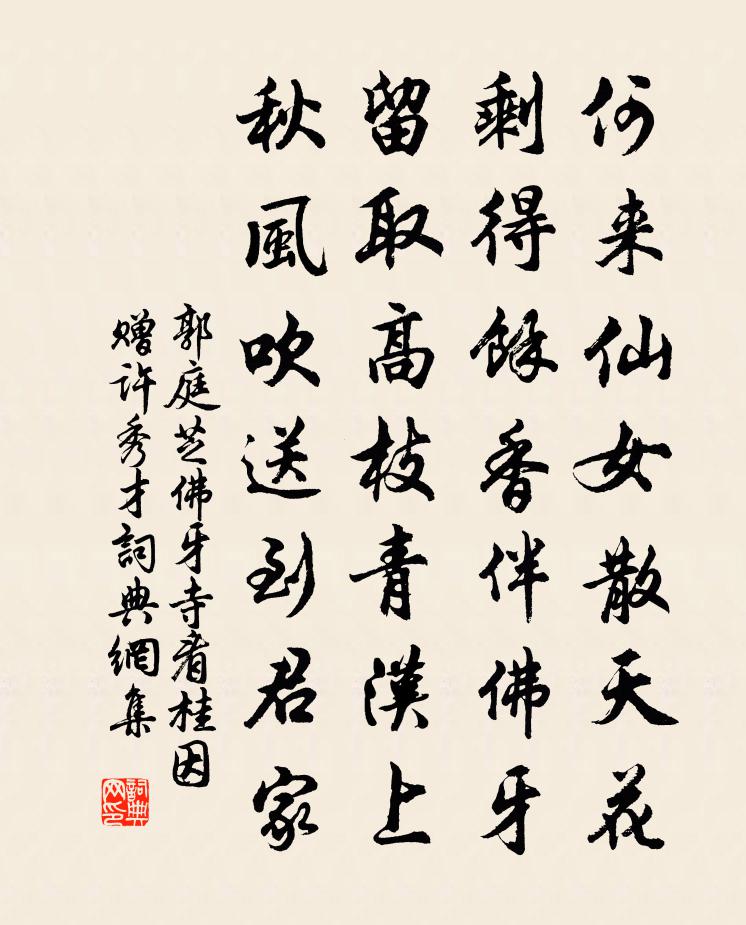 何来仙女散天花
剩得餘香伴佛牙
留取高枝青漢上
秋風吹送到君家
郭庭芝佛牙寺看桂因
赠許秀才詞典網集
詞典网印